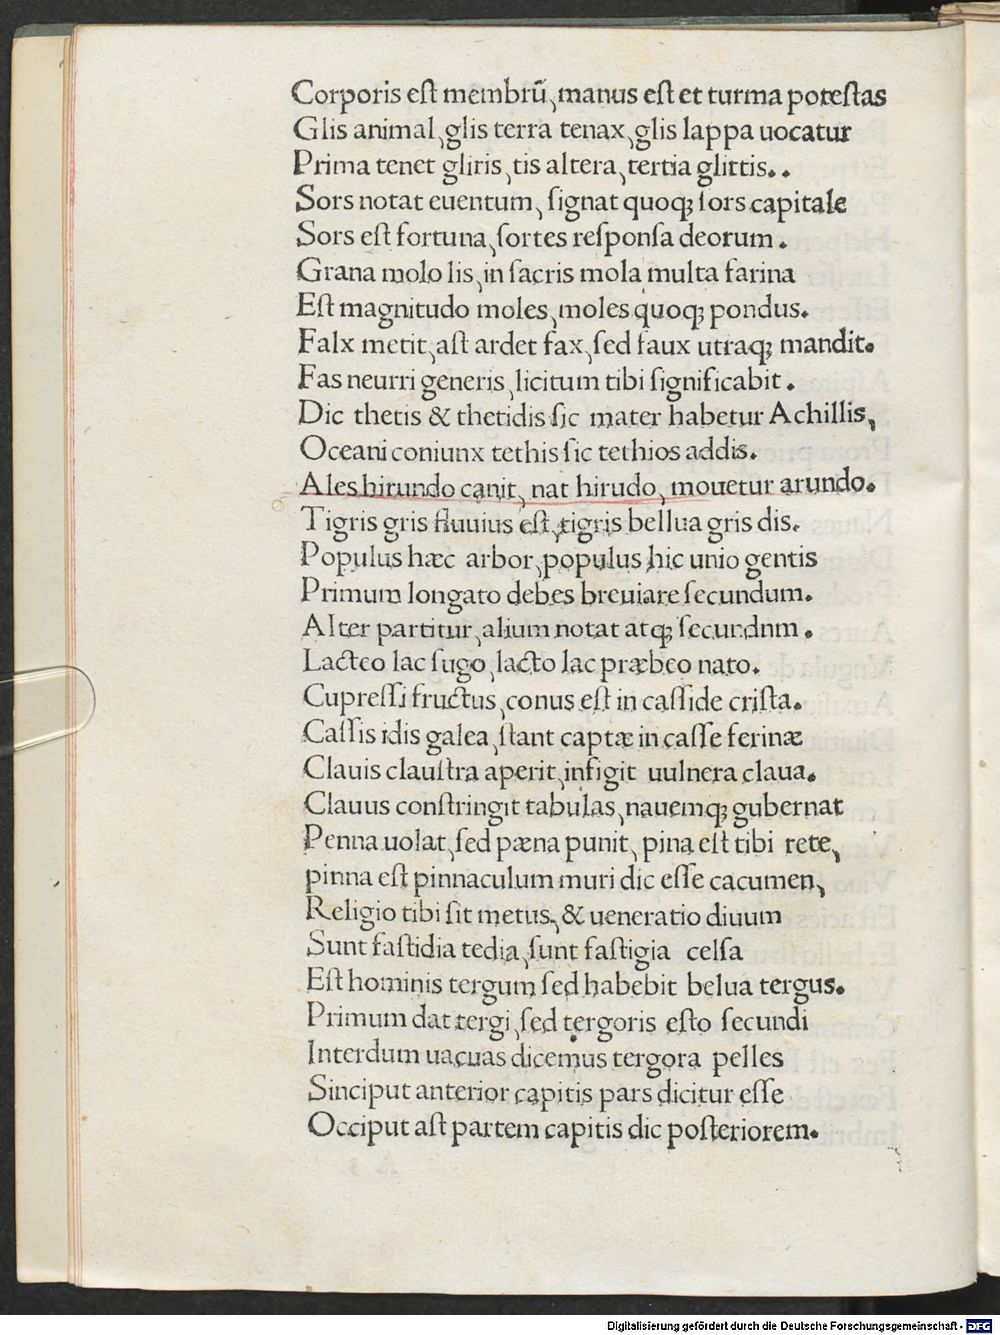 Corporis eſt membrū, manus eſt et turma poteſtas
Glis animal, glis terra tenax, glis lappa uocatur
Prima tenet gliris, tis altera, tertia glittis..
Sors notat euentum, ſignat quoqꝫ ſors capitale
Sors eſt fortuna, ſortes reſponſa deorum.
Grana molo lis, in ſacris mola multa farina
Eſt magnitudo moles, moles quoqꝫ pondus.
Falx metit, aſt ardet fax, ſed faux utraqꝫ mandit.
Fas neurri generis, licitum tibi ſignificabit.
Dic thetis & thetidis ſic mater habetur Achillis,
Oceani coniunx tethis ſic tethios addis.
Ales hirundo canit, nat hirudo, mouetur arundo.
Tigris gris fluuius eſt, tigris bellua gris dis.
Populus hæc arbor, populus hic unio gentis
Primum longato debes breuiare ſecundum.
Alter partitur, alium notat atqꝫ ſecundnm.
Lacteo lac ſugo, lacto lac præbeo nato.
Cupreſſi fructus, conus eſt in caſſide criſta.
Caſſis idis galea, ſtant captæ in caſſe ferinæ
Clauis clauſtra aperit, infigit uulnera claua.
Clauus conſtringit tabulas, nauemqꝫ gubernat
Penna uolat, ſed pæna punit, pina eſt tibi rete,
pinna eſt pinnaculum muri dic eſſe cacumen,
Religio tibi ſit metus, & ueneratio diuum
Sunt faſtidia tedia, ſunt faſtigia celſa
Eſt hominis tergum ſed habebit belua tergus.
Primum dat tergi, ſed tergoris eſto ſecundi
Interdum uacuas dicemus tergora pelles
Sinciput anterior capitis pars dicitur eſſe
Occiput aſt partem capitis dic poſteriorem.
Digitalisierung gefördert durch die Deutsche Forschungsgemeinschaft - DFG